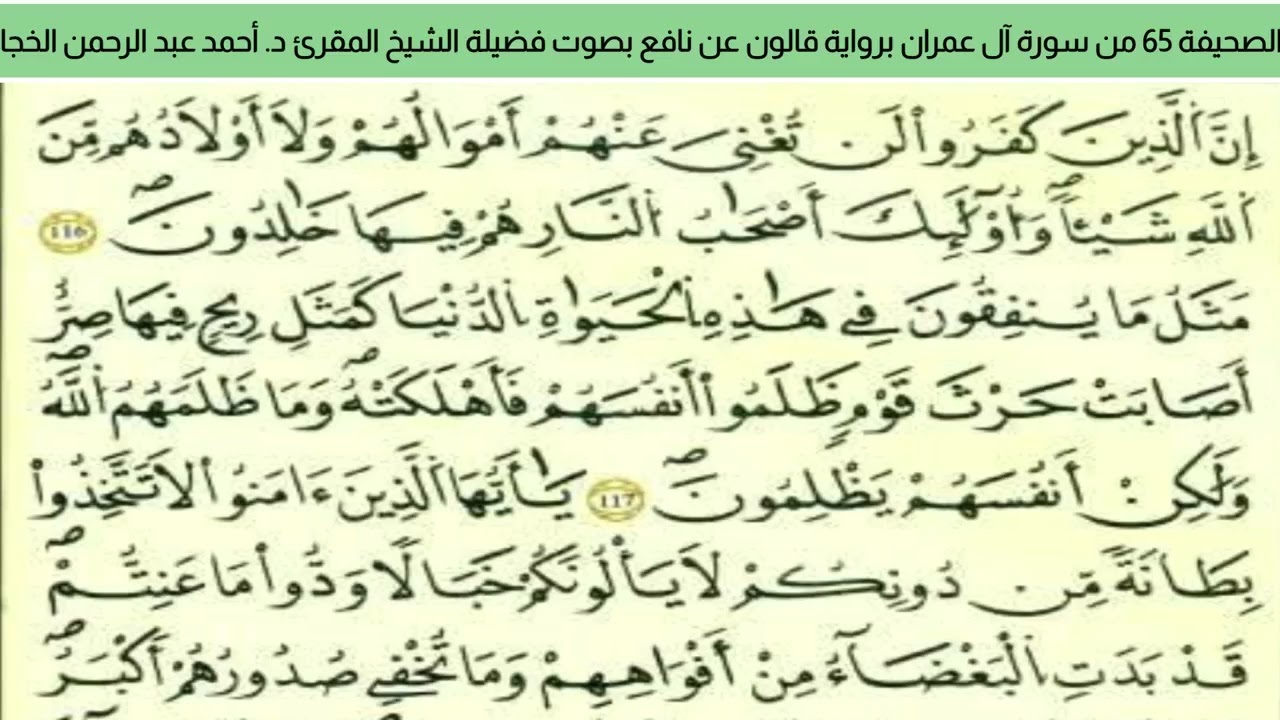 الصحيفة 65 من سورة آل عمران برواية قالون عن نافع بصوت فضيلة الشيخ المقرئ د. أحمد عبد الرحمن الخجا
إِنَّ اَ۬لذِينَ كَفَرُواْ لَن تُغْنِيَ عَنْهُمْ أَمْوَالُهُمْ وَلَا أَوْلَادُهُم مِّنَ
اَ۬للَّهِ شَيْـٔاًۖ وَأُوْلَٰٓئِكَ أَصْحَٰبُ اُ۬لنَّارِ هُمْ فِيهَا خَٰلِدُونَۖ 116
مَثَلُ مَا يُنفِقُونَ فِے هَٰذِهِ اِ۬لْحَيَوٰةِ اِ۬لدُّنْيَا كَمَثَلِ رِيحٍ فِيهَا صِرٌّ
أَصَابَتْ حَرْثَ قَوْمٍ ظَلَمُواْ أَنفُسَهُمْ فَأَهْلَكَتْهُۖ وَمَا ظَلَمَهُمُ اُ۬للَّهُۖ
وَلَٰكِنْ أَنفُسَهُمْ يَظْلِمُونَۖ 117 يَٰأَيُّهَا اَ۬لذِينَ ءَامَنُواْ لَا تَتَّخِذُواْ
بِطَانَةً مِّن دُونِكُمْ لَا يَأْلُونَكُمْ خَبَالًا وَدُّواْ مَا عَنِتُّمْۖ
قَدْ بَدَتِ اِ۬لْبَغْضَآءُ مِنْ أَفْوَاهِهِمْ وَمَا تُخْفِے صُدُورُهُمْ أَكْبَرُۖ